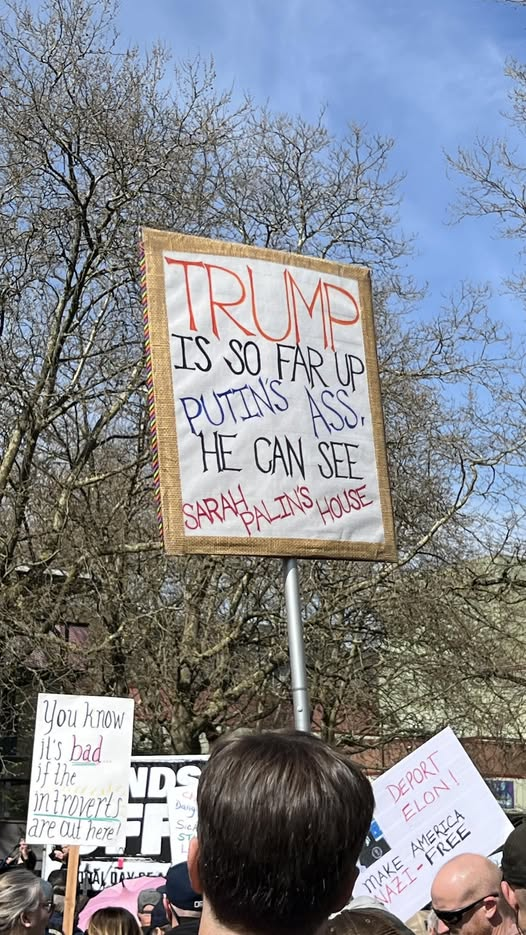 TRUMP
IS SO FAR UP
PUTIN'S ASS,
HE CAN SEE
SARAH PALIN'S HOUSE
You know
it's bad...
if the
introverts
are out here!
NDS
FF
DEPORT
ELON!
MAKE AMERICA
NAZI-FREE